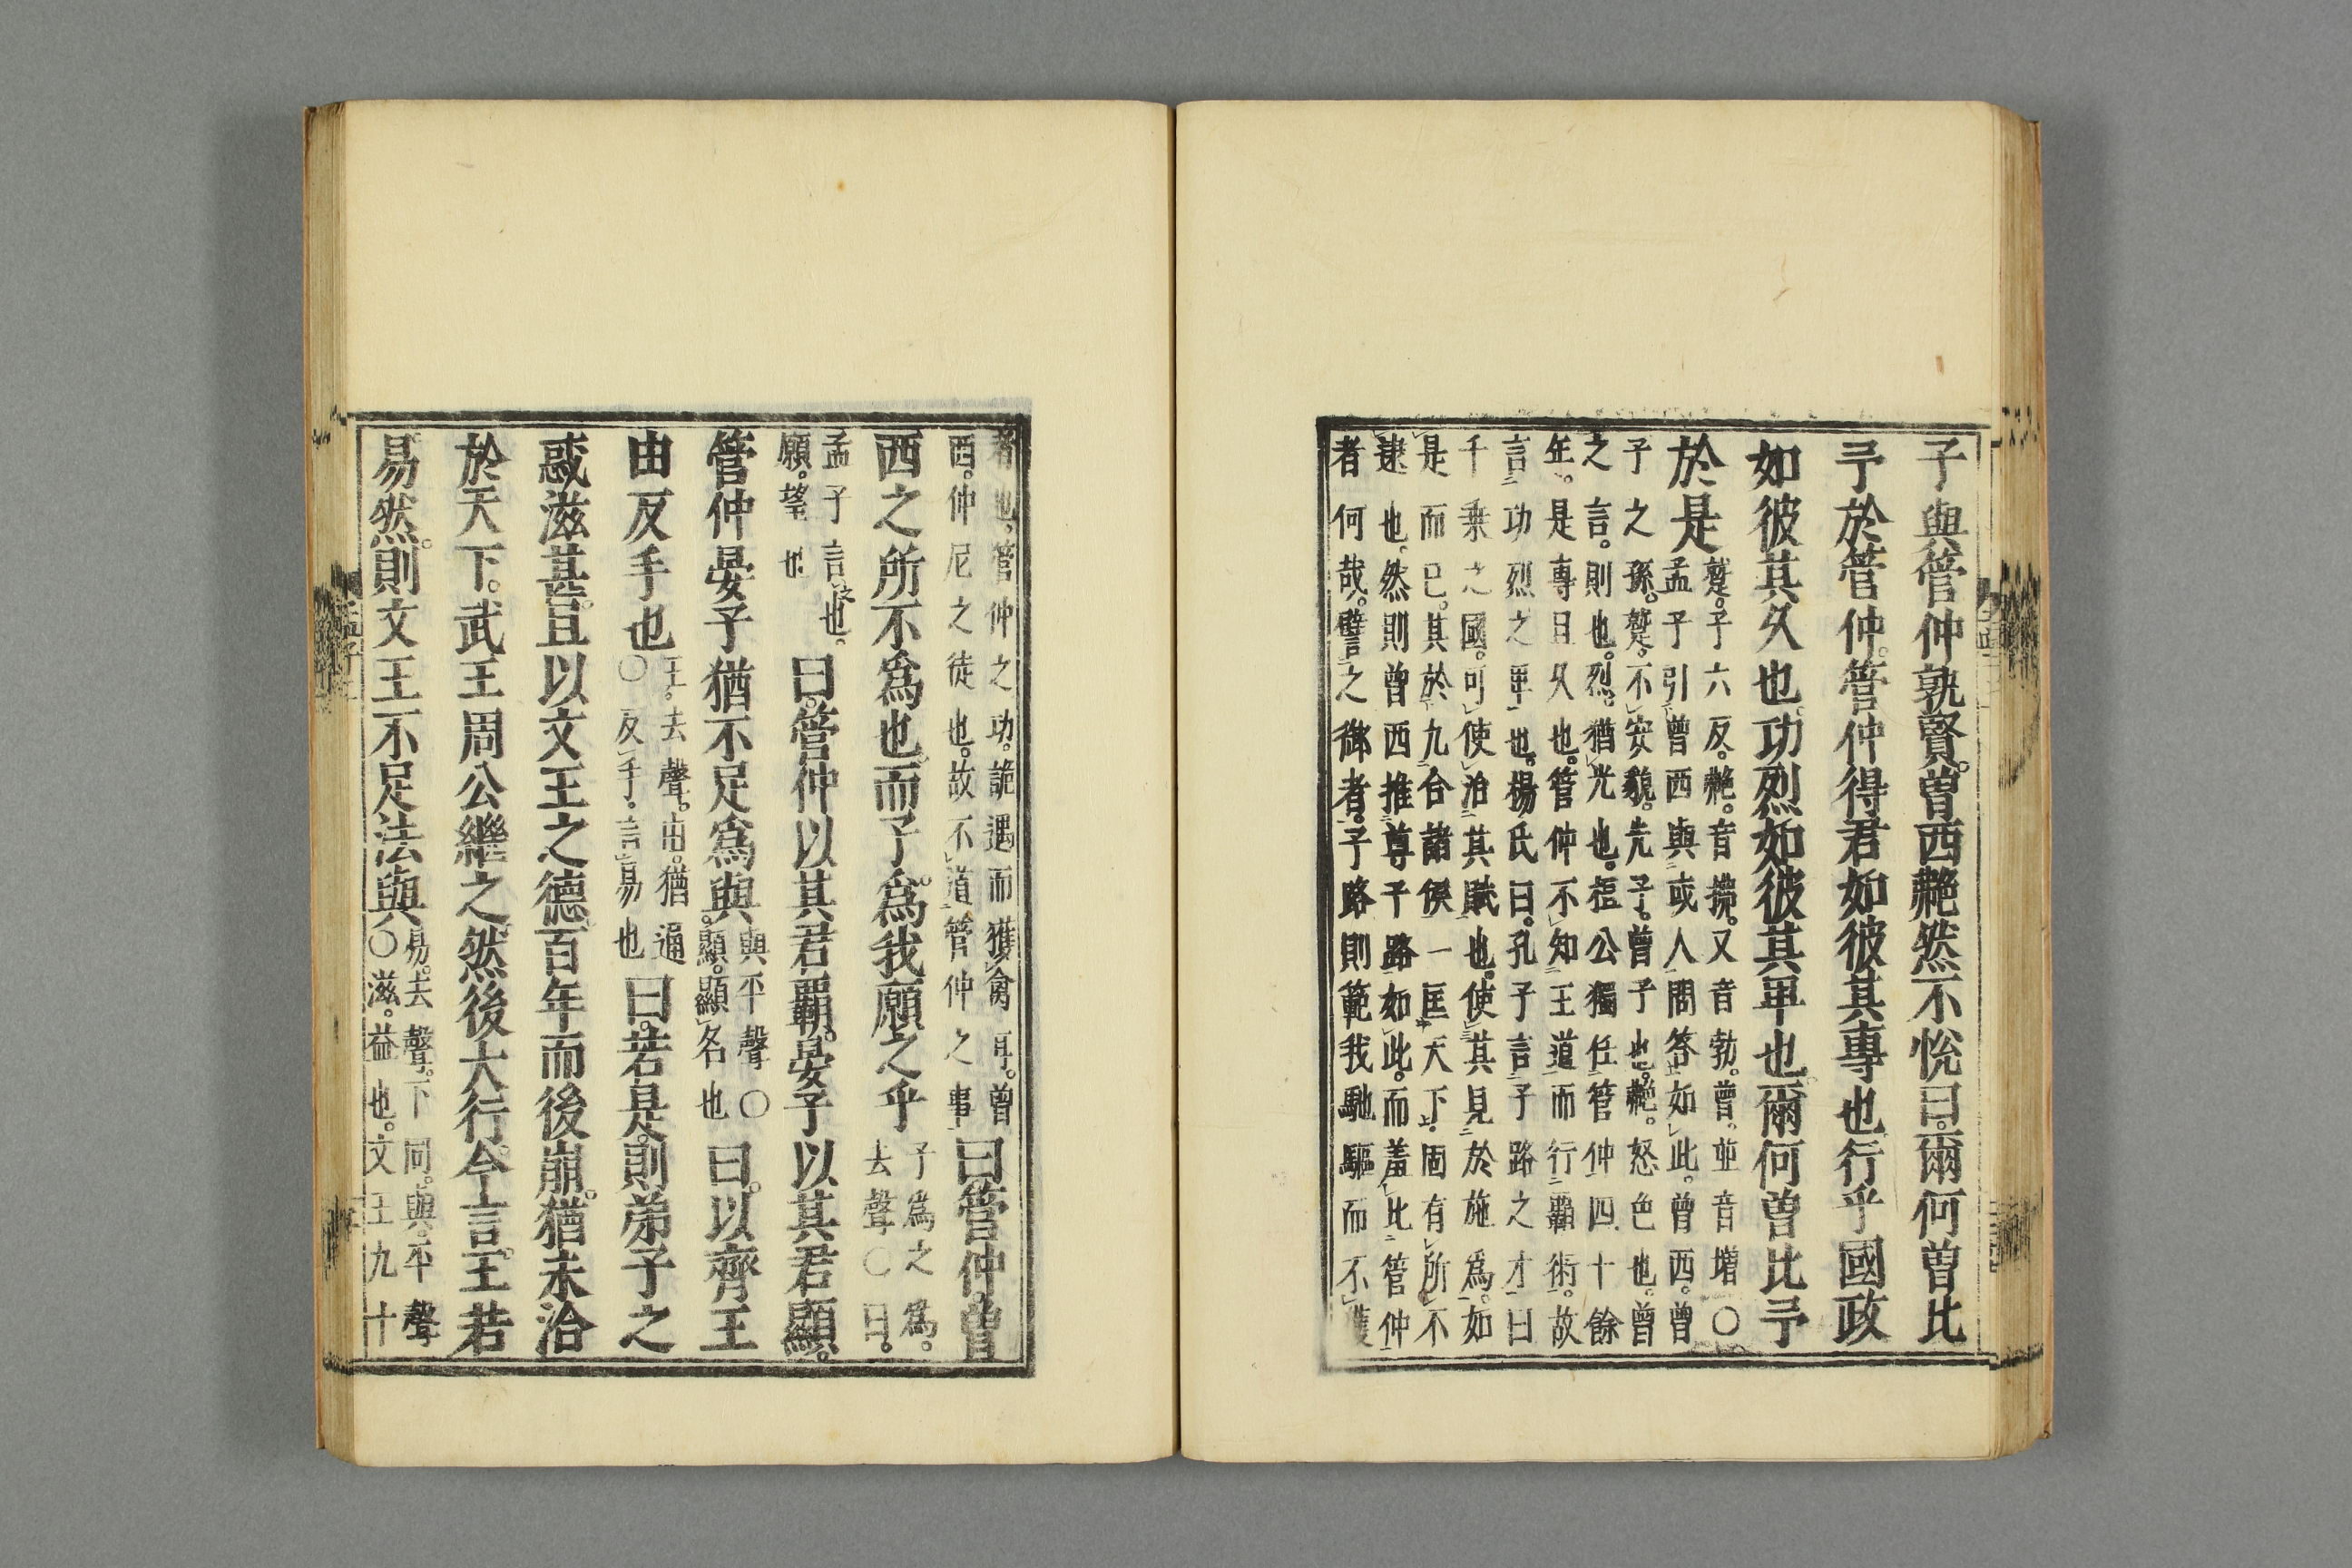 子與管仲孰賢。曽西艴然不悅曰。爾何曽比
予於管仲。管仲得君如彼其專也行乎國政
如彼其久也功烈如彼其卑也爾何曽比予
於是
蹵。子六反。艴。音拂。又音勃。曽。並音増○
孟子引曽西與或人問答如此。曽西。曽
子之孫。蹵。不安貌。先子。曽子也。艴。怒色也。曽
之言。則也。烈。猶光也。桓公獨任管仲四十餘
年。是專且久也。管仲不知王道而行霸術。故
言功烈之卑也。楊氏曰。孔子言子路之才曰
千乗之國。可使治其賦也。使其見於施爲。如
是而已。其於九合諸侯一匡天下。固有所不
逮也。然則曽西推尊子路如此。而羞比管仲
者何哉。譬之御者。子路則範我馳驅而不獲
者也。管仲之功。詭遇而獲禽耳。曽
西。仲尼之徒也。故不道管仲之事
曰管仲。曽
西之所不爲也而子爲我願之乎
子爲之爲。
去聲○曰。
孟子言也。
願。望也
曰。管仲以其君霸。晏子以其君顯。
管仲晏子猶不足爲與。
與平聲○
顯。顯名也
曰。以齊王
由反手也
王。去聲。由。猶通
○反手。言易也
曰。若是。則弟子之
惑滋甚。且以文王之德百年而後崩。猶未洽
於天下。武王周公繼之。然後大行今言王若
易然。則文王不足法與
易。去聲。下同。與。平聲
○滋。益也。文王九十